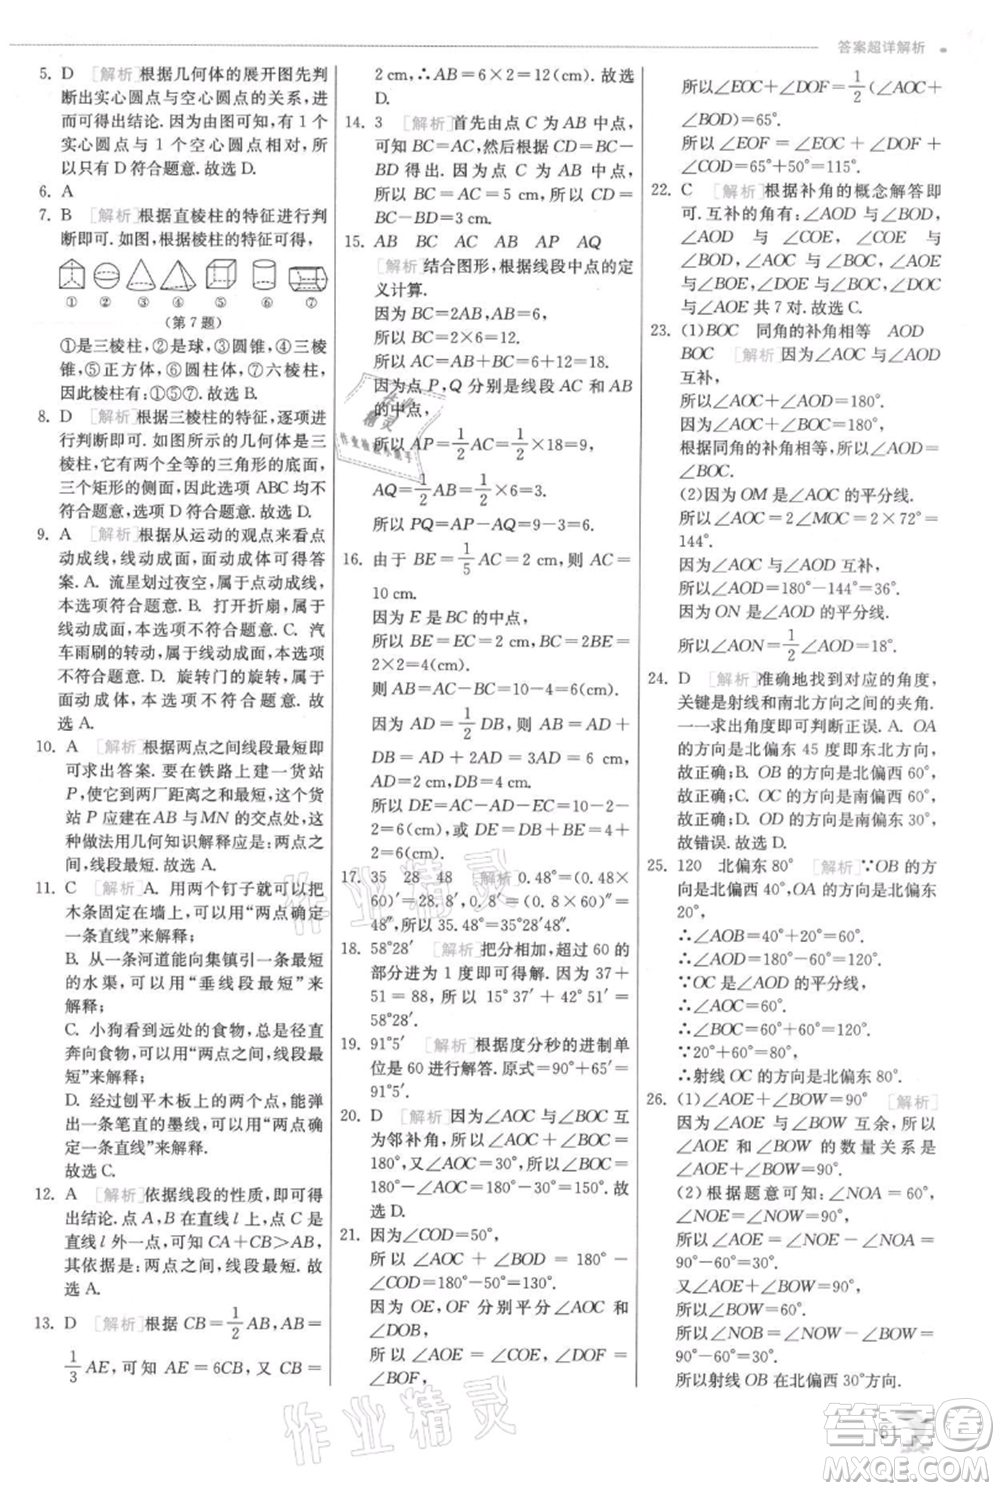 答案超详解析
5. D [解析]根据几何体的展开图先判
断出实心圆点与空心圆点的关系,进
而可得出结论.因为由图可知,1 个
实心圆点与 1 个空心圆点相邻,所
以只有 D 符合题意.故选 D.
6. A
7. B [解析]根据直棱柱的特征进行判
断即可.如图,根据棱柱的特征可得,
① ② ③ ④ ⑤ ⑥ ⑦
(第 7 题)
①是三棱柱,②是球,③圆锥,④三棱
锥,⑤正方体,⑥圆柱体,⑦六棱柱,
因此棱柱有:①⑤⑦.故选 B.
8. D [解析]根据三棱柱的特征,逐项进
行判断即可.如图所示的几何体是三
棱柱,有两个全等的三角形的底面,
三个矩形的侧面,因此选项 ABC 均不
符合题意,选项 D 符合题意.故选 D.
9. A [解析]根据从运动的观点来看点
动成线,线动成面,面动成体可得答
案.A. 流星划过夜空,属于点动成线,
本选项符合题意.B. 打开折扇,属于
线动成面,本选项不符合题意.C. 汽
车雨刷的转动,属于线动成面,本选
项不符合题意.D. 旋转门的旋转,属于
面动成体,本选项不符合题意.故
选 A.
10. A [解析]根据两点之间线段最短即
可求出答案.要在铁路上建一货站
P,使它到两厂距离之和最短,这个货
站 P 应建在 AB 与 MN 的交点处,这
种做法用几何知识解释应是:两点之
间,线段最短.故选 A.
11. C [解析]A. 用两个钉子就可以把
木条固定在墙上,可以用“两点确定
一条直线”来解释;
B. 从一条河道能向集镇引一条最短
的水渠,可以用“垂线段最短”来
解释;
C. 小狗看到远处的食物,总是径直
奔向食物,可以用“两点之间,线段
最短”来解释;
D. 经过刨平木板上的两个点,能弹
出一条笔直的墨线,可以用“两点确
定一条直线”来解释.
故选 C.
12. A [解析]依据线段的性质,即可得
出结论.点 A,B 在直线 l 上,点 C 是
直线 l 外一点,可知 CA+CB>AB,
其依据是:两点之间,线段最短.故
选 A.
13. D [解析]根据 CB=1/2AB,AB=
1/3AE,可知 AE=6CB,又 CB=
2 cm,∴AB=6×2=12(cm).故选
D.
14. 3 [解析]首先由点 C 为 AB 中点,
可知 BC=AC,然后根据 CD=BC-
BD 得出.因为点 C 为 AB 中点,
所以 BC=AC=5 cm,所以 CD=
BC-BD=3 cm.
15. AB BC AC AP AQ
[解析]结合图形,根据线段中点的定
义计算.
因为 BC=2AB,AB=6,
所以 BC=2×6=12.
所以 AC=AB+BC=6+12=18.
因为点 P,Q 分别是线段 AC 和 AB
的中点,
所以 AP=1/2AC=1/2×18=9,
AQ=1/2AB=1/2×6=3.
所以 PQ=AP-AQ=9-3=6.
16. 由于 BE=1/5AC=2 cm,则 AC=
10 cm.
因为 E 是 BC 的中点,
所以 BE=EC=2 cm,BC=2BE=
2×2=4(cm).
则 AB=AC-BC=10-4=6(cm).
因为 AD=1/2DB,所以 AB=AD+
DB=AD+2AD=3AD=6 cm.
所以 AD=2 cm,DB=4 cm.
所以 DE=AC-AD-EC=10-2-
2=6(cm)或 DE=DB+BE=4+
2=6(cm).
17. 35 28 48 [解析]0.48°=(0.48×
60)′=28.8′,0.8′=(0.8×60)″=
48″,所以 35.48°=35°28′48″.
18. 58°28′ [解析]把分相加,超过 60 的
部分进为 1 度即可得解.因为 37+
51=88,所以 15°37′+42°51′=
58°28′.
19. 91°5′ [解析]根据度分秒的进制单
位是 60 进行解答.原式=90°+65′=
91°5′.
20. D [解析]因为∠AOC 与∠BOC 互
为邻补角,所以∠AOC+∠BOC=
180°,又∠AOC=60°,所以∠BOC=
180°-∠AOC=180°-60°=120°.故
选 D.
21. 因为∠COD=50°,
所以∠AOC+∠BOD=180°-
∠COD=180°-50°=130°.
因为 OE,OF 分别平分∠AOC 和
∠DOB,
所以∠AOE=∠COE,∠DOF=
∠BOF.
所以∠EOC+∠DOF=1/2(∠AOC+
∠BOD)=65°.
所以∠EOF=∠EOC+∠DOF+
∠COD=65°+50°=115°.
22. C [解析]根据补角的概念解答即
可.互补的角有:∠AOD 与∠BOD,
∠AOD 与∠COE,∠AOC 与
∠BOC,∠AOC 与∠DOE,∠AOE
与∠BOE,∠BOD 与∠COE,∠DOE
与∠AOE 共 7 对.故选 C.
23. (1)BOC 同角的补角相等 AOD
BOC [解析]因为∠AOD 与∠AOC
互补,
所以∠AOD+∠AOC=180°.
因为∠AOC+∠BOC=180°,
根据同角的补角相等,所以∠AOD=
∠BOC.
(2)因为 OM 是∠AOC 的平分线.
所以∠AOC=2∠MOC=2×72°=
144°.
因为∠AOC 与∠AOD 互补,
所以∠AOD=180°-144°=36°.
因为 ON 是∠AOD 的平分线.
所以∠AON=1/2∠AOD=18°.
24. D [解析]准确地找到对应的角度,
关键是射线和南北方向之间的夹角.
一一求出角度即可判断正误.A. OA
的方向是北偏东 45 度即东北方向,
故正确;B. OB 的方向是北偏西 60°,
故正确;C. OC 的方向是南偏西 60°,
故正确;D. OD 的方向是南偏东 60°,
故错误.故选 D.
25. 120 北偏东 80° [解析]∵OB 的方
向是北偏西 40°,OA 的方向是北偏东
20°,
∴∠AOB=40°+20°=60°.
∵∠AOB=∠AOD,
∴∠AOD=60°.
∵OC 是∠AOD 的平分线,
∴∠AOC=60°.
∴∠BOC=60°+60°=120°.
∵20°+60°=80°,
∴射线 OC 的方向是北偏东 80°.
26. (1)∠AOE+∠BOW=90° [解析]
因为∠AOE 与∠BOW 互余,所以
∠AOE 和∠BOW 的数量关系是
∠AOE+∠BOW=90°.
(2)根据题意可知:∠NOA=60°,
∠NOE=∠NOW=90°,
所以∠AOE=∠NOE-∠NOA=
90°-60°=30°.
又∠AOE+∠BOW=90°,
所以∠BOW=60°.
所以∠NOB=∠NOW-∠BOW=
90°-60°=30°.
所以射线 OB 在北偏西 30°方向.
作业精灵
作业精灵
答案圈
MXQE.COM